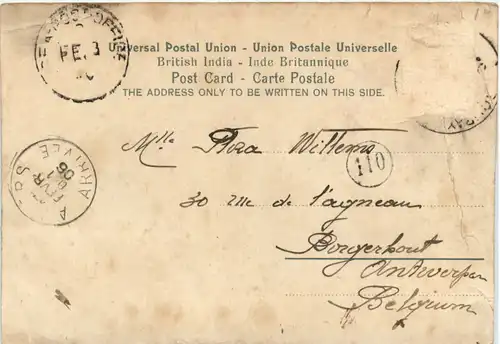 SEA POST OFFICE
FE. 3
Universal Postal Union - Union Postale Universelle
British India - Inde Britannique
Post Card - Carte Postale
THE ADDRESS ONLY TO BE WRITTEN ON THIS SIDE.
ARRIVÉE
FEVR
06
Mlle Flora Willems
110
30 rue de l'agneau
Borgerhout
Antwerpen
Belgium